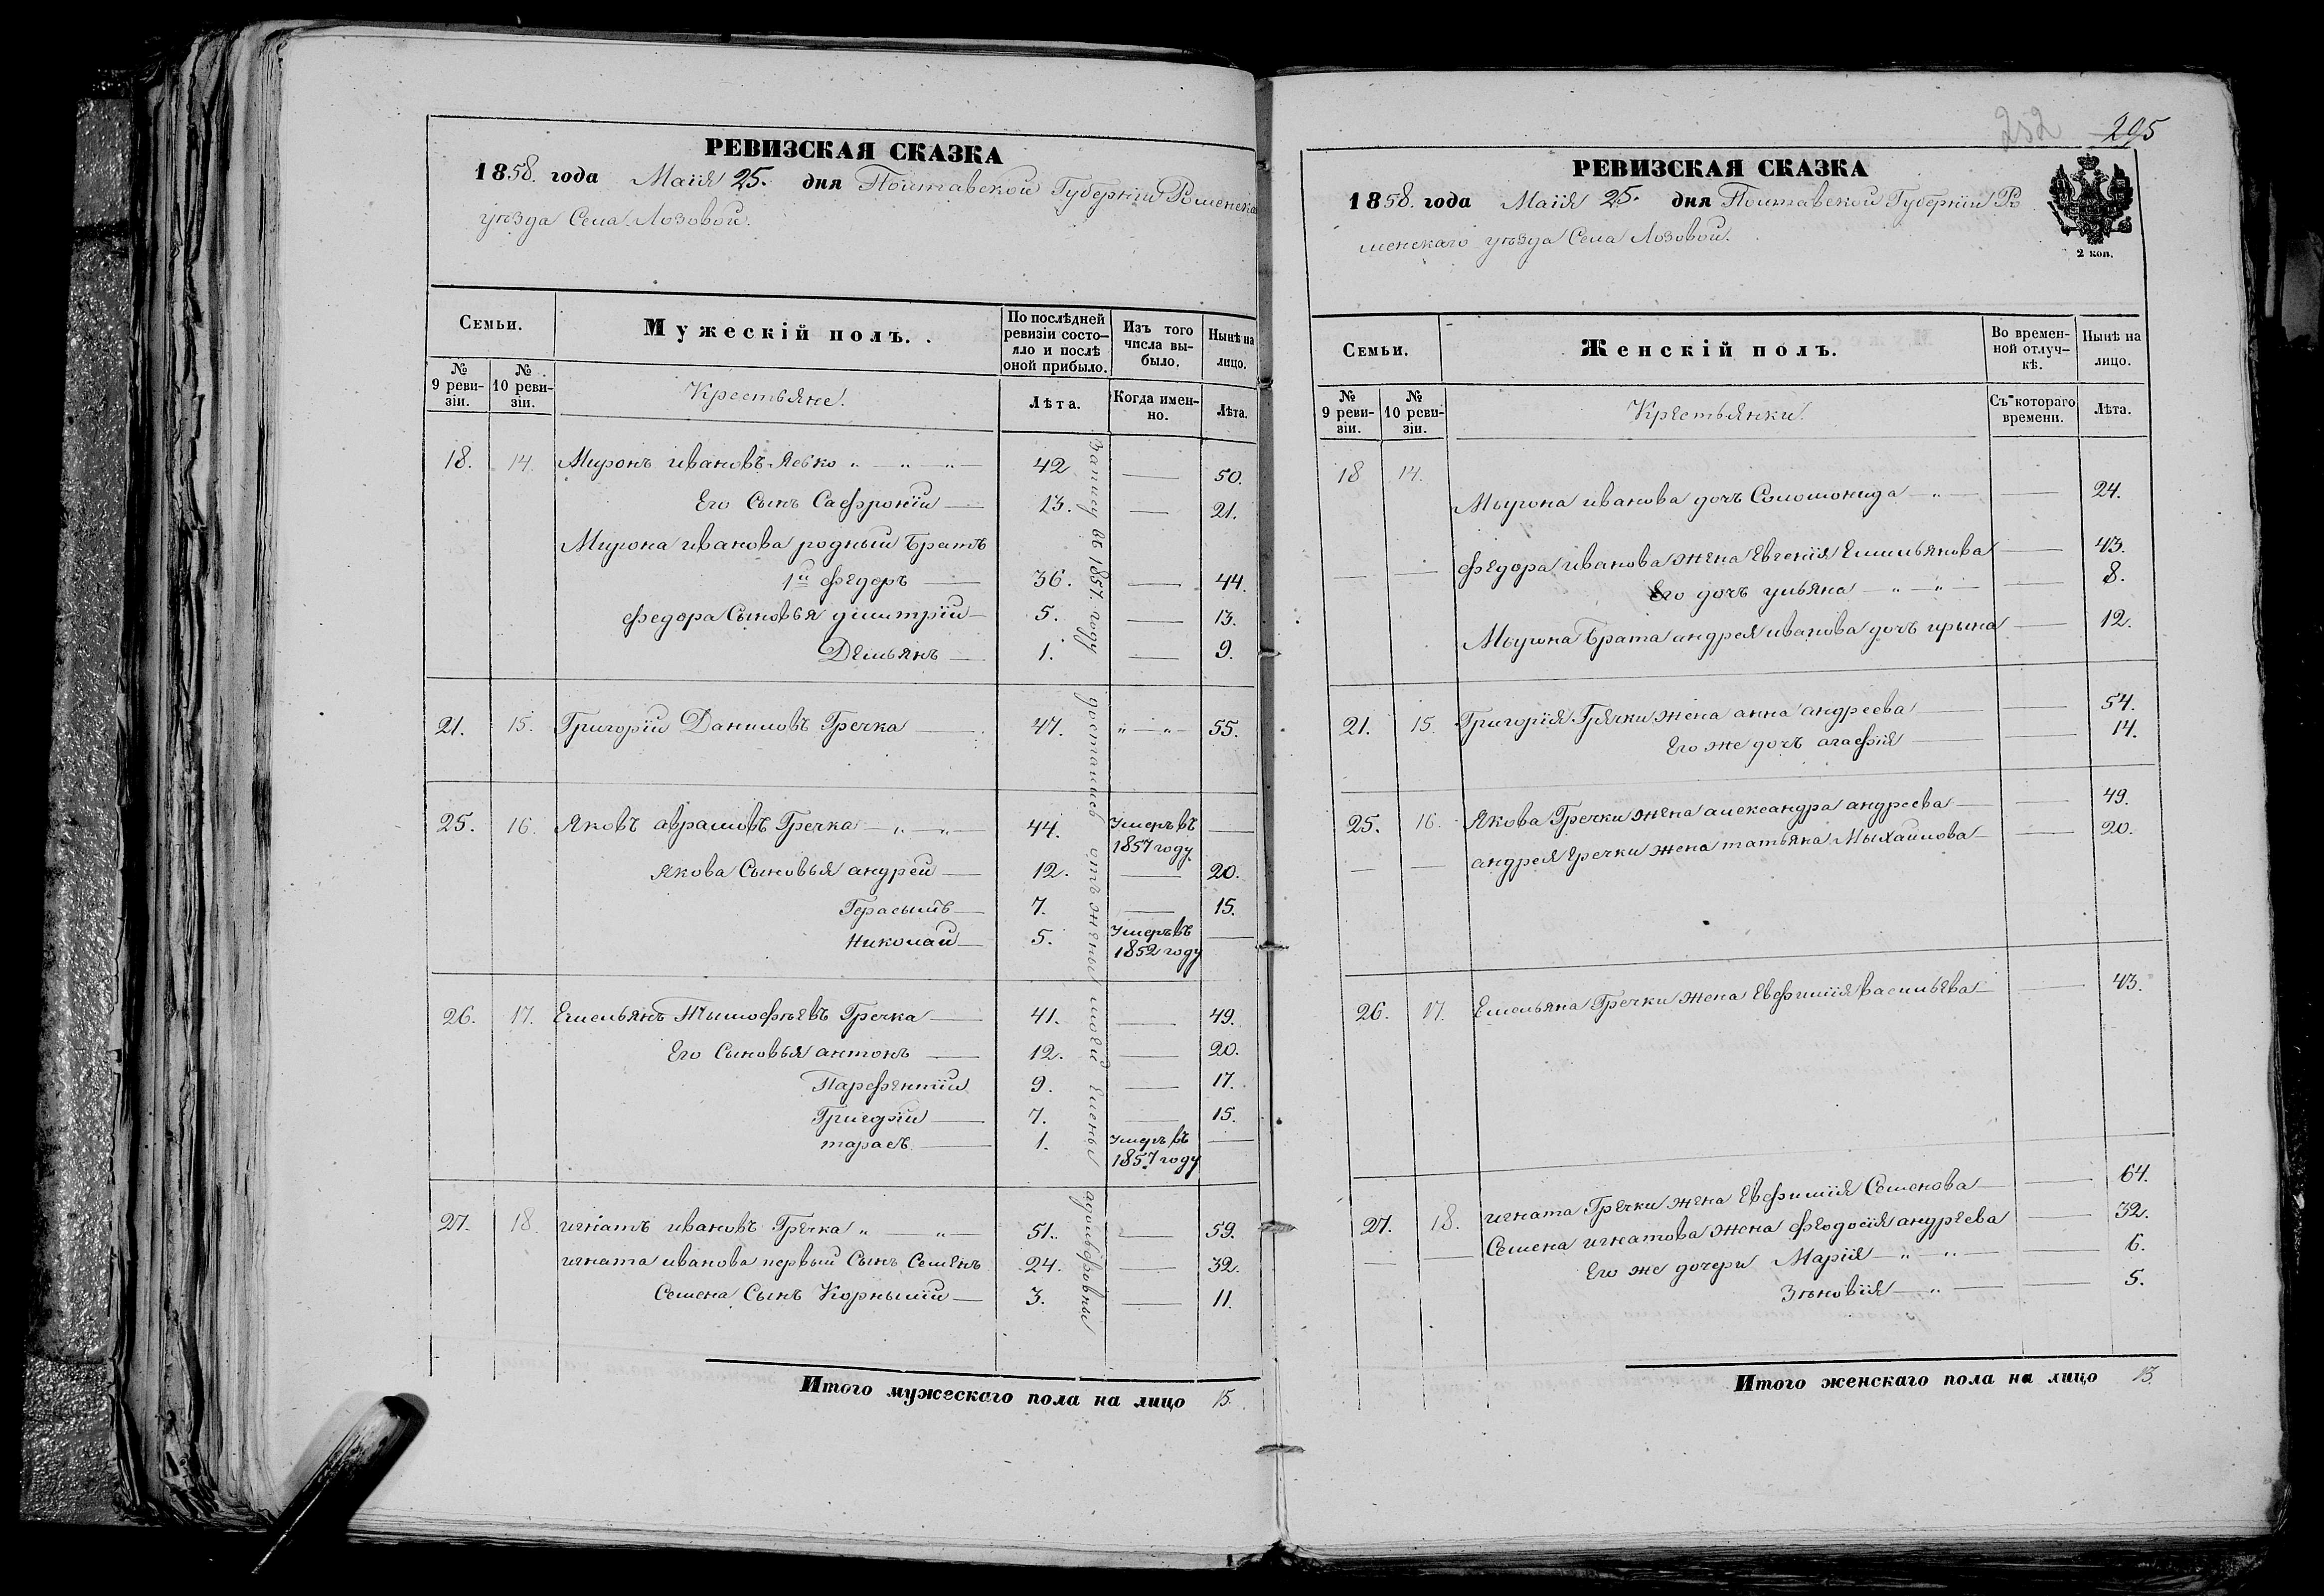 РЕВИЗСКАЯ СКАЗКА
1858. года Маія 25. дня Полтавской Губерніи Роменска
уѣзда Села Лозовой.
Семьи.
Мужескій полъ.
По послѣдней ревизіи состо-
яло и послѣ оной прибыло.
Изъ того числа вы-
было.
Нынѣ на лицо.
№ 9 реви-
зіи.
№ 10 реви-
зіи.
Крестьяне.
Лѣта.
Когда имен-
но.
Лѣта.
18. 14. Миронъ ивановъ Явко „ — „ — „ — 42 — 50.
Его Сынъ Сафроній — 13. — 21.
Мирона иванова родный Братъ
1й Федоръ — 36. — 44.
Федора Сыновья дмитрій — 5. — 13.
Демьянъ — 1. — 9.
21. 15. Григорій Даниловъ Гречка — 47. „ — „ — 55.
25. 16. Яковъ аврамовъ Гречка — „ — „ — 44. Умеръ въ 1857 году —
Якова Сыновья андрей — 12. — 20.
Герасымъ — 7. — 15.
Николай — 5. Умеръ въ 1852 году —
26. 17. Емельянъ Тымофѣевъ Гречка — 41. — 49.
Его Сыновья антонъ — 12. — 20.
Парфентій 9. — 17.
Григорій — 7. — 15.
тарасъ — 1. Умеръ въ 1857 году —
27. 18. игнатъ ивановъ Гречка „ — „ — 51. — 59.
игната иванова первый Сынъ Семенъ 24. — 32.
Семена Сынъ Корнылій — 3. — 11.
въ 1857 году достались отъ жены моей Елены адольфовны
Итого мужескаго пола на лицо 15.
252 295
РЕВИЗСКАЯ СКАЗКА
1858. года Маія 25. дня Полтавской Губерніи Ро
менскаго уѣзда Села Лозовой.
2 коп.
Семьи.
Женскій полъ.
Во времен-
ной отлуч-
кѣ.
Нынѣ на лицо.
№ 9 реви-
зіи.
№ 10 реви-
зіи.
Крестьянки.
Съ котораго времени.
Лѣта.
18 14.
Мырона иванова дочь Соломонида — „ — — 24.
— — Федора иванова жена Евгенія Емельянова — 43.
Его дочь ульяна — „ — „ — — 8.
Мырона Брата андрея иванова дочь ирына — 12.
21. 15. Григорія Гречки жена анна андреева — — 54.
Его же дочь агафія — — 14.
25. 16. Якова Гречки жена александра андреева — — 49.
— — андрея Гречки жена татьяна Мыхайлова — — 20.
26. 17. Емельяна Гречки жена Евфимія васильева — — 43.
27. 18. игната Гречки жена Евфимія Семенова — — 64.
— — Семена игнатова жена Феодосія андреева — 32.
Его же дочери Марія — „ — „ — — 6.
Зѣновія — „ — — 5.
Итого женскаго пола на лицо 13.